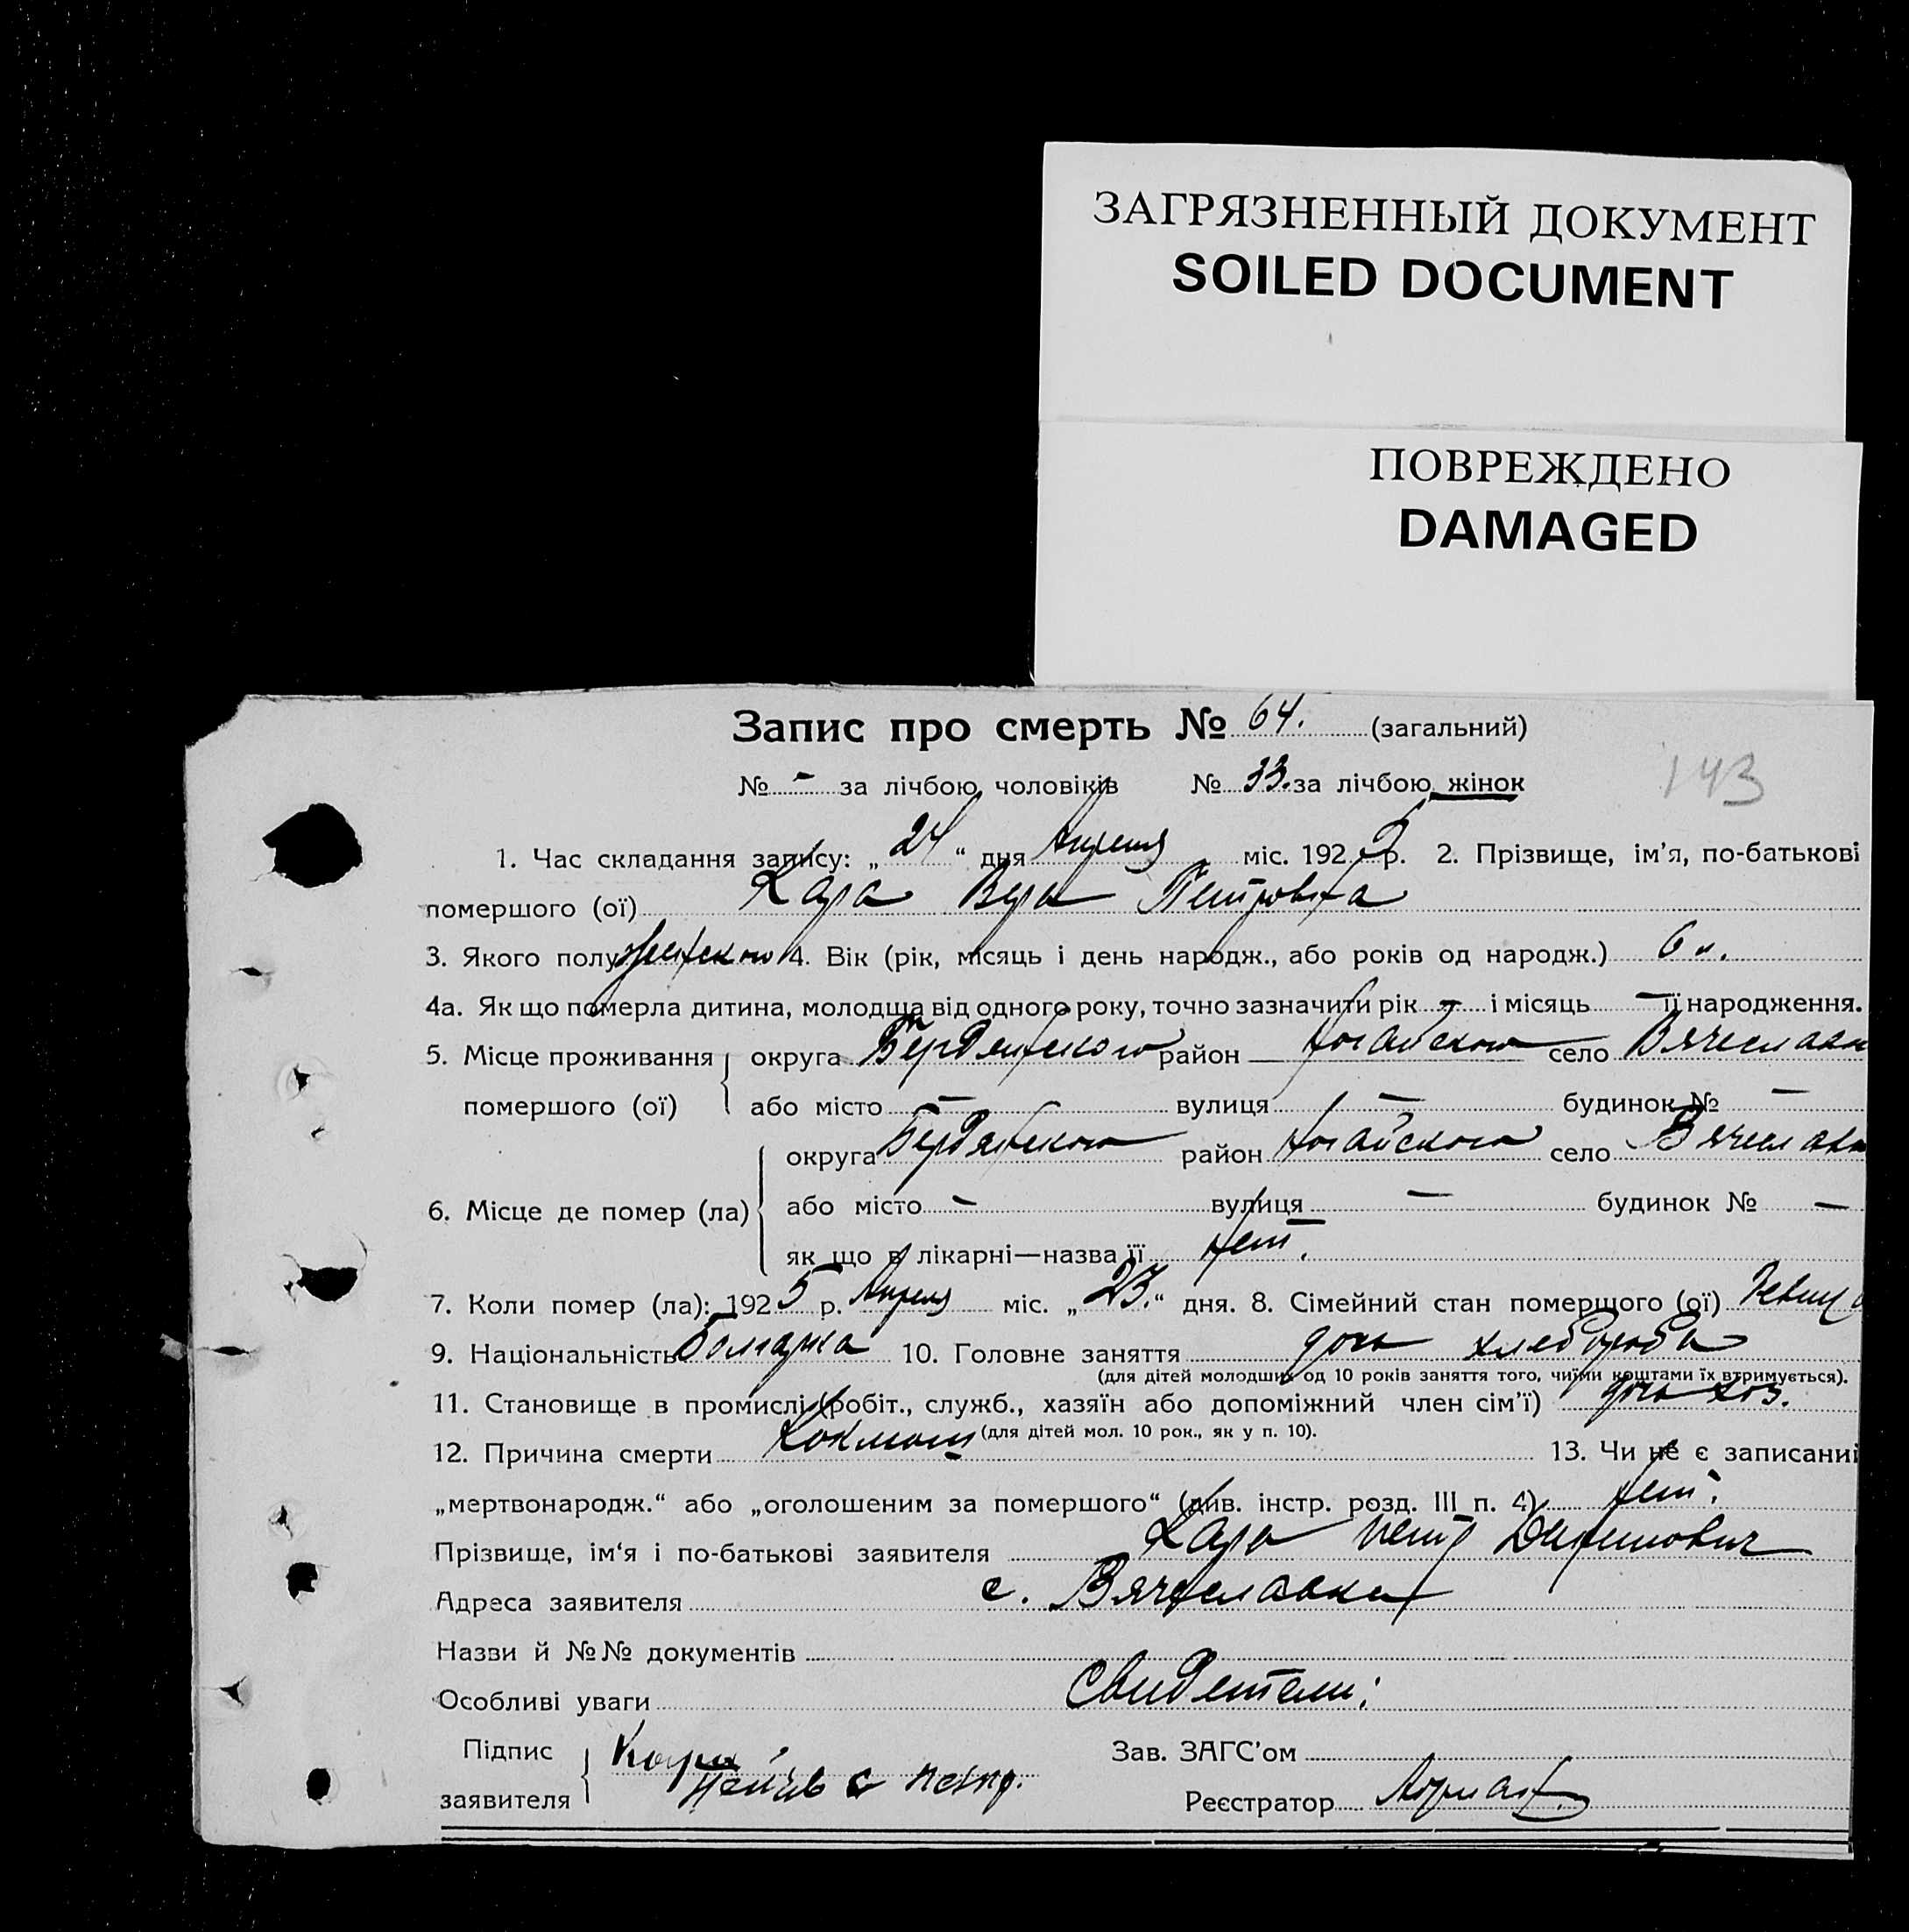 ЗАГРЯЗНЕННЫЙ ДОКУМЕНТ
SOILED DOCUMENT
ПОВРЕЖДЕНО
DAMAGED
Запис про смерть № 64. (загальний)
№ - за лічбою чоловіків № 33. за лічбою жінок
143
1. Час складання запису: „24“ дня Апреля міс. 1925 р. 2. Прізвище, ім'я, по-батькові
помершого (ої) Кара Вера Петровна
3. Якого полу женского 4. Вік (рік, місяць і день народж., або років од народж.) 6 л.
4а. Як що померла дитина, молодща від одного року, точно зазначити рік - і місяць - її народження.
5. Місце проживання округа Бердянского район Ногайского село Вячеславк
помершого (ої) або місто - вулиця - будинок № -
округа Бердянского район Ногайского село Вячеславк
6. Місце де помер (ла) або місто - вулиця - будинок № -
як що в лікарні—назва її нет.
7. Коли помер (ла): 1925 р. Апреля міс. „23.“ дня. 8. Сімейний стан помершого (ої) девица
9. Національність болгарка 10. Головне заняття дочь хлебороба
(для дітей молодших од 10 років заняття того, чиїми коштами їх втримується).
11. Становище в промислі (робіт., служб., хазяїн або допоміжний член сім'ї) дочь хоз.
(для дітей мол. 10 рок., як у п. 10).
12. Причина смерти Коклюш 13. Чи не є записаний
„мертвонародж.“ або „оголошеним за помершого“ (див. інстр. розд. III п. 4) нет.
Прізвище, ім'я і по-батькові заявителя Кара Петр
Адреса заявителя с. Вячеславка
Назви й №№ документів
Особливі уваги Свидетели:
Підпис
заявителя
Зав. ЗАГС'ом
Реєстратор